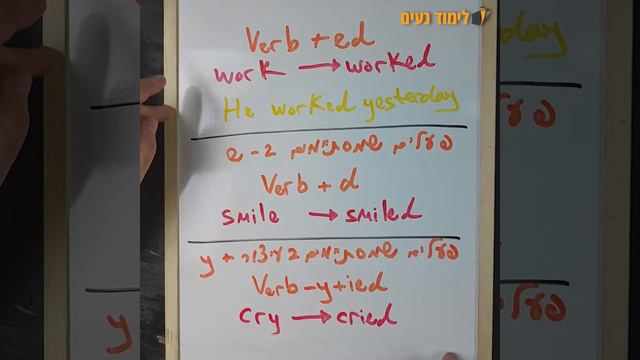 לימוד נעים
Verb + ed
work → worked
He worked yesterday
פעלים שמסתיימים ב- e
Verb + d
smile → smiled
פעלים שמסתיימים בעיצור + y
Verb - y + ied
cry → cried